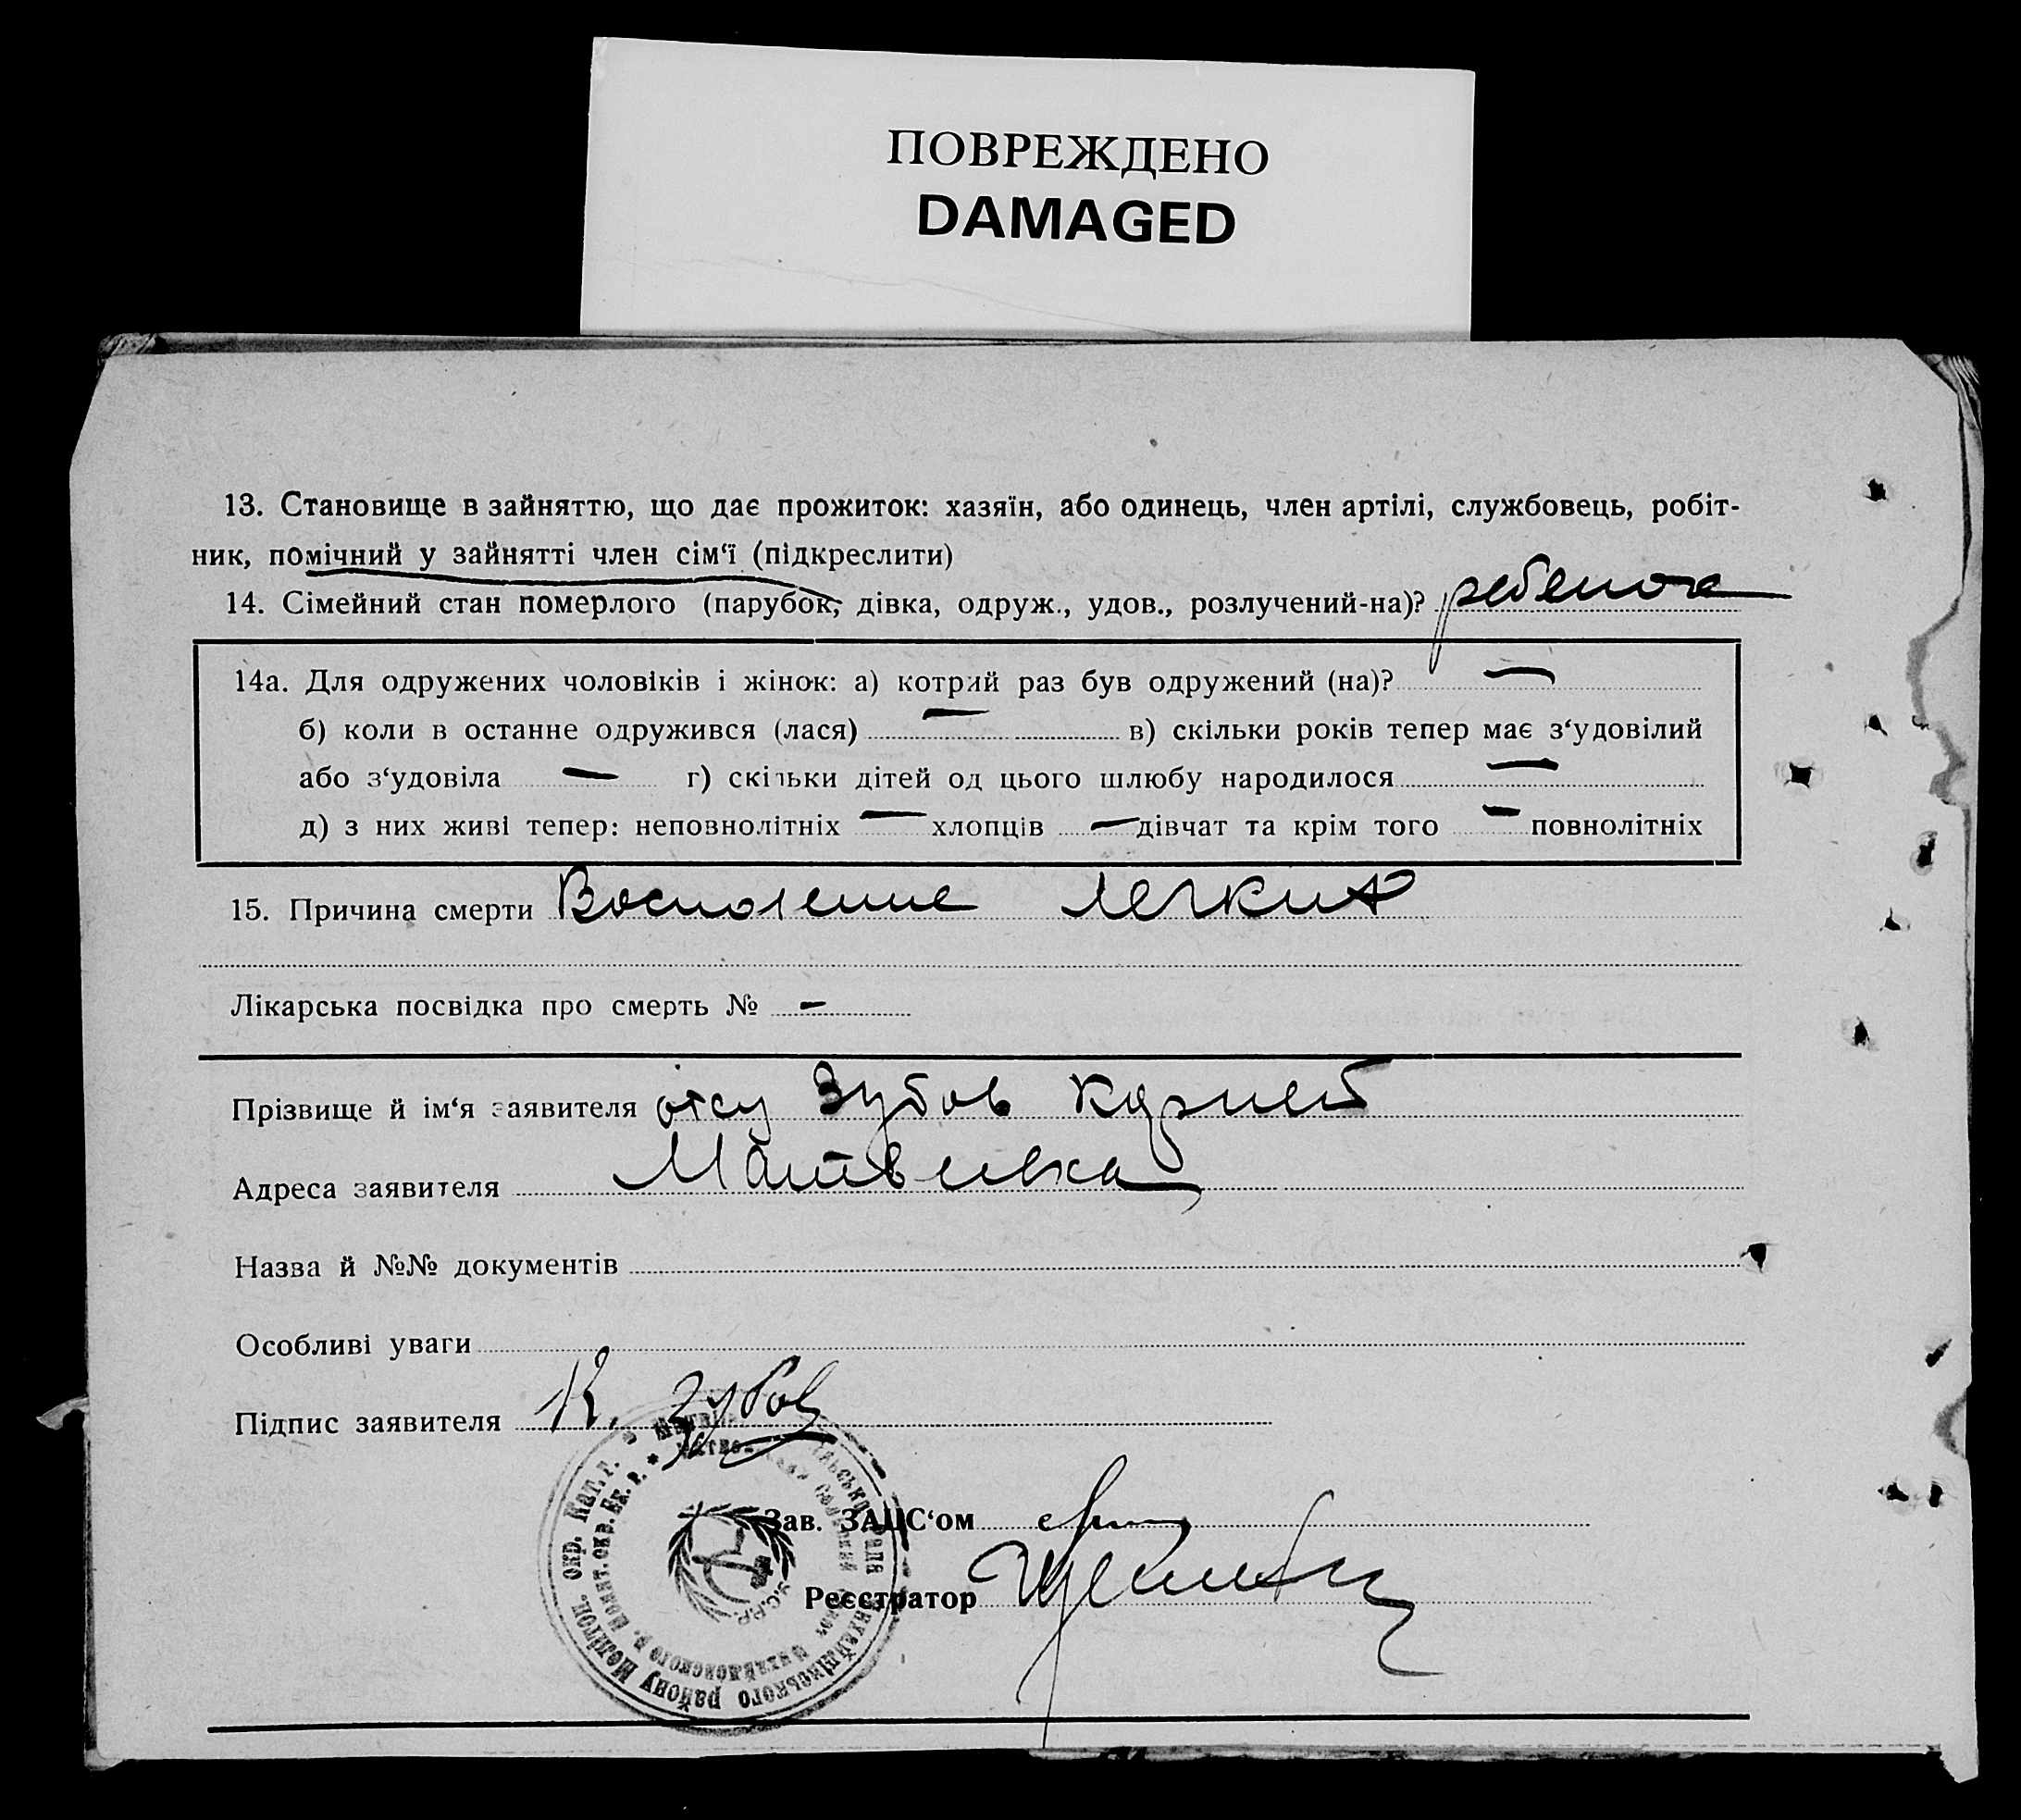 ПОВРЕЖДЕНО
DAMAGED
13. Становище в зайняттю, що дає прожиток: хазяїн, або одинець, член артілі, службовець, робіт-
ник, помічний у зайнятті член сім‘ї (підкреслити)
14. Сімейний стан померлого (парубок, дівка, одруж., удов., розлучений-на)? ребенок
14а. Для одружених чоловіків і жінок: а) котрий раз був одружений (на)? —
б) коли в останне одружився (лася) — в) скільки років тепер має з‘удовілий
або з‘удовіла — г) скільки дітей од цього шлюбу народилося —
д) з них живі тепер: неповнолітніх — хлопців — дівчат та крім того — повнолітніх
15. Причина смерти Воспаление легких
Лікарська посвідка про смерть № -
Прізвище й ім‘я заявителя отец Зубов Корней
Адреса заявителя Матвеевка
Назва й №№ документів
Особливі уваги
Підпис заявителя К. Зубов
Зав. ЗАЦС‘ом
Реєстратор
окр. Мелітоп. району Михайлівського
У.С.Р.Р.